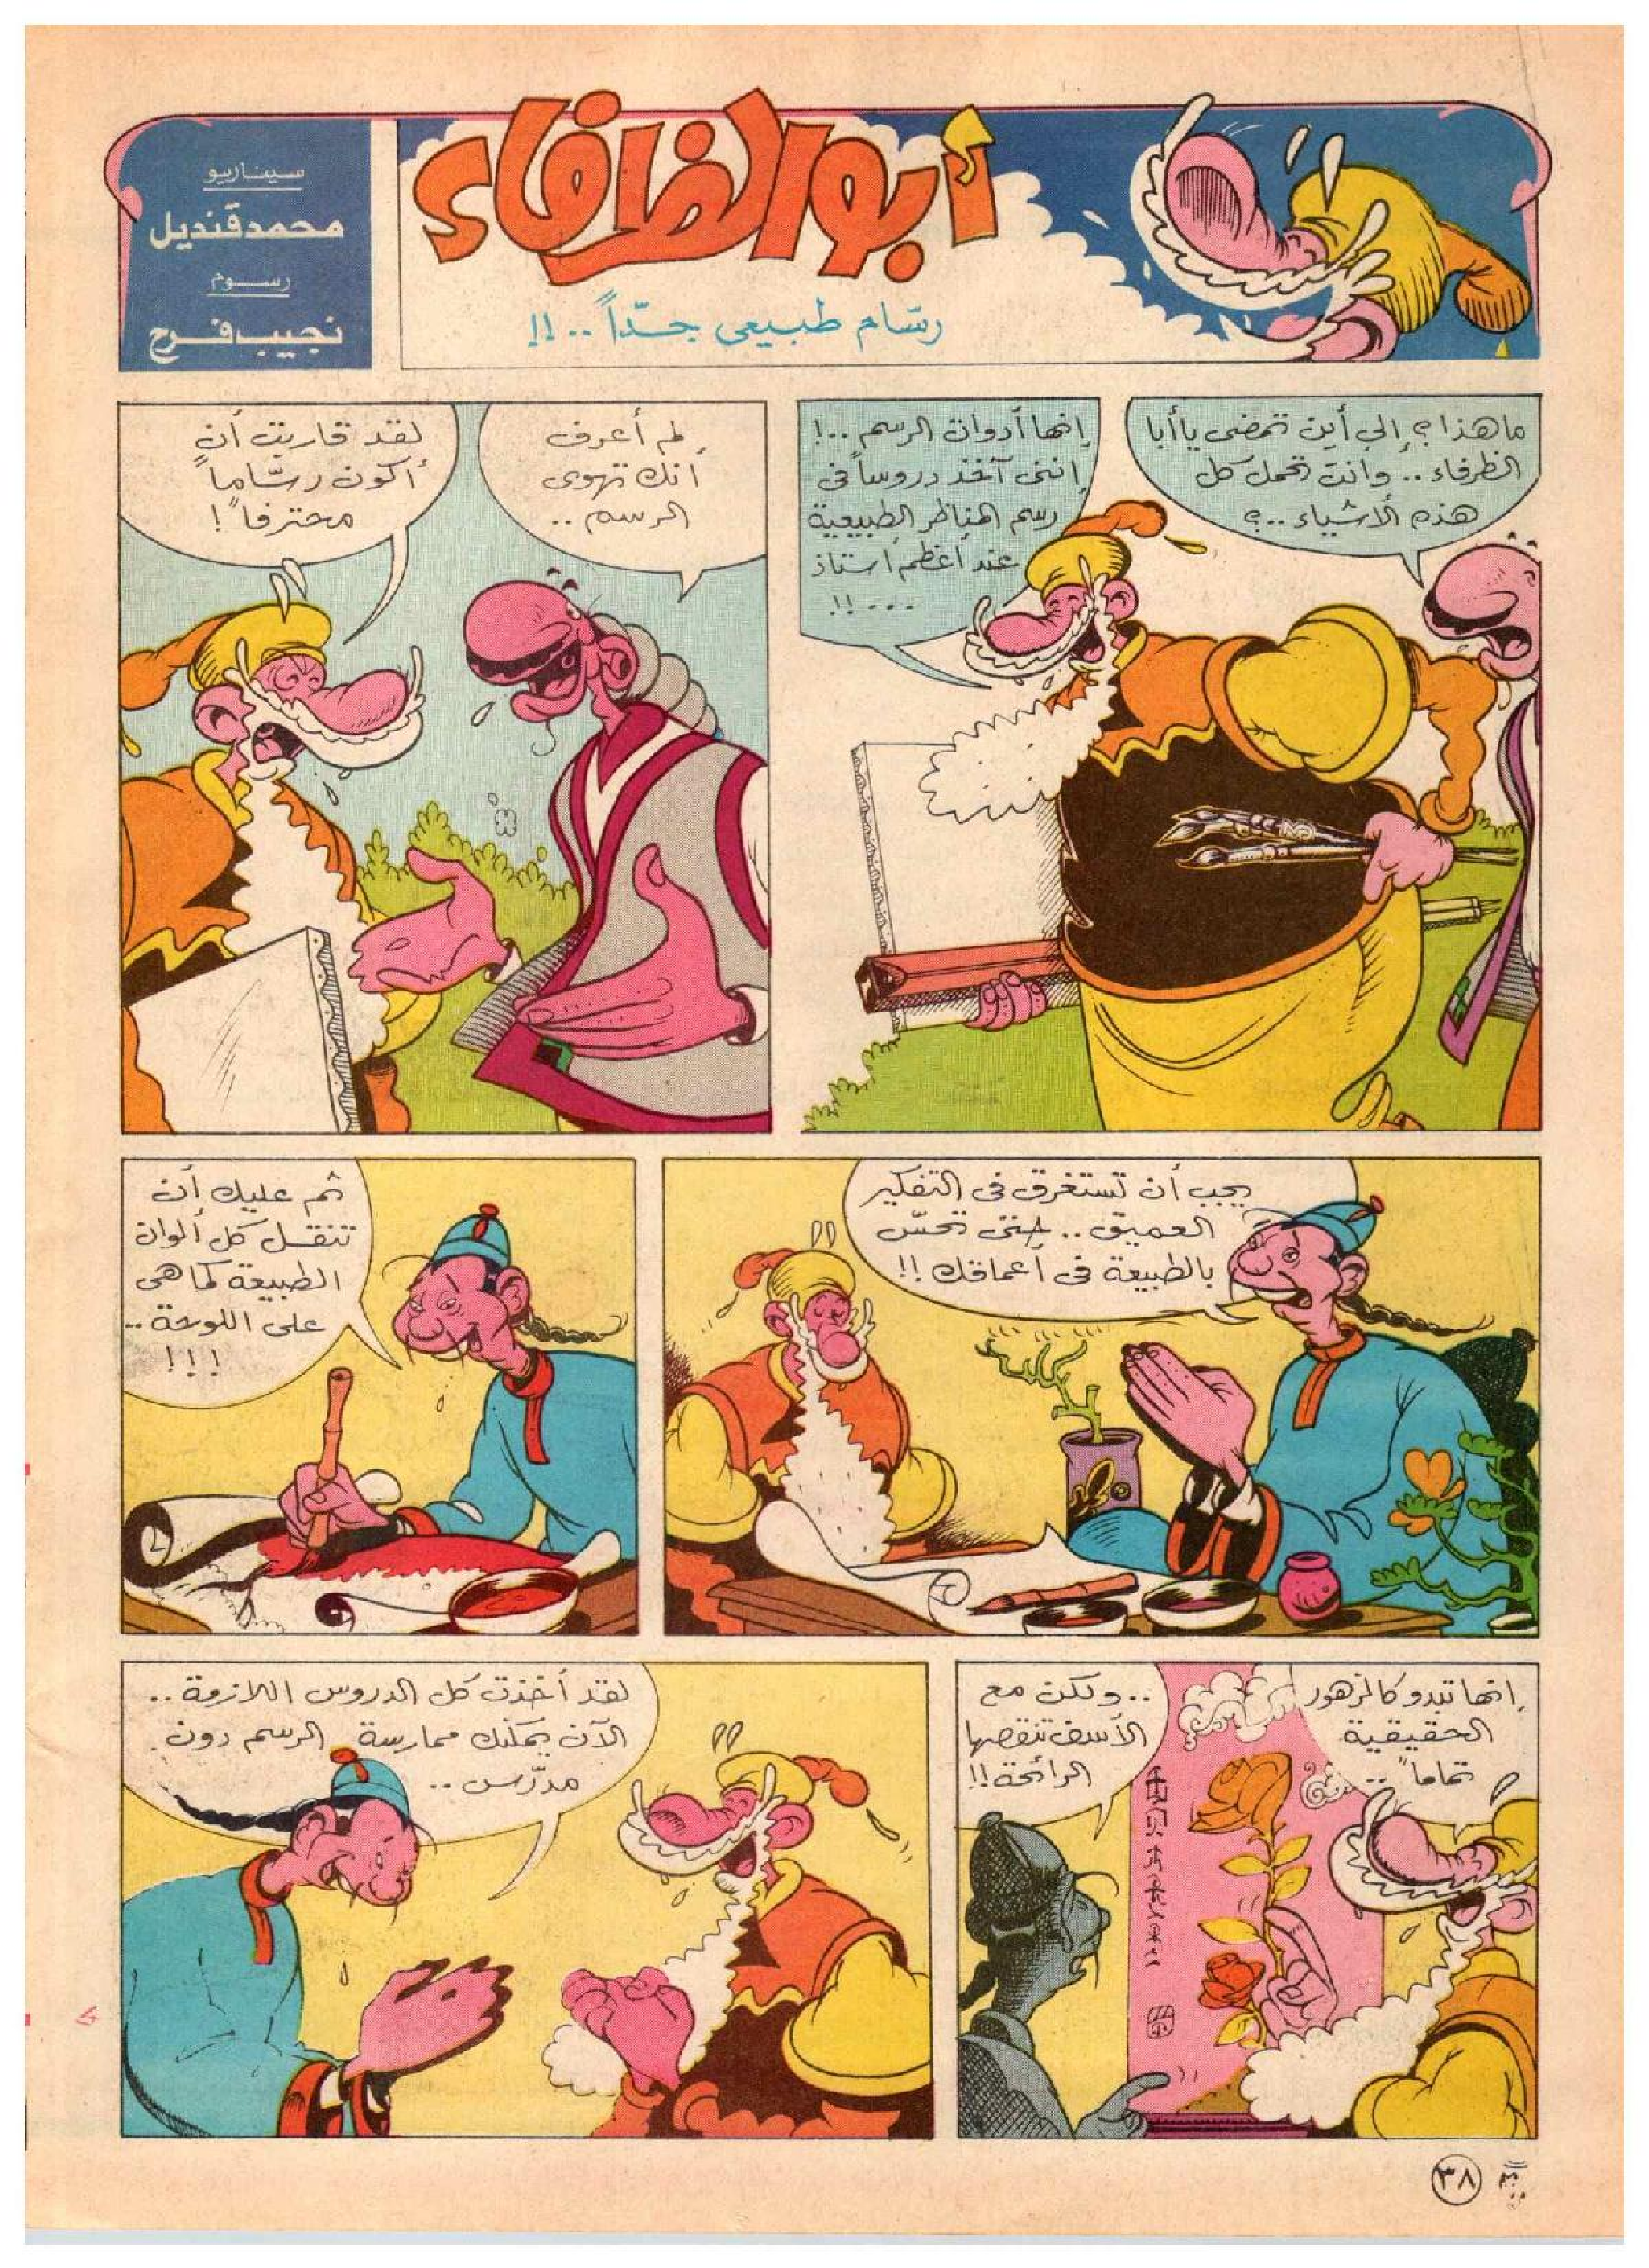 أبو الظرفاء
رسّام طبيعى جدّاً .. !!
سيناريو
محمد قنديل
رسوم
نجيب فرح
ما هذا ؟ إلى أين تمضى يا أبا
الظرفاء .. وانت تحمل كل
هذه الأشياء .. ؟
إنها أدوات الرسم .. !
إننى آخذ دروساً فى
رسم المناظر الطبيعية
عند أعظم أستاذ
... !!
لم أعرف
أنك تهوى
الرسم ..
لقد قاربت أن
أكون رسّاماً
محترفاً !
يجب أن تستغرق فى التفكير
العميق .. حتى تحسّ
بالطبيعة فى أعماقك !!
ثم عليك أن
تنقل كل ألوان
الطبيعة كما هى
على اللوحة ..
!!!
إنها تبدو كالزهور
الحقيقية
تماماً ..
.. ولكن مع
الأسف تنقصها
الرائحة !!
لقد أخذت كل الدروس اللازمة ..
الآن يمكنك ممارسة الرسم دون
مدرّس ..
٣٨